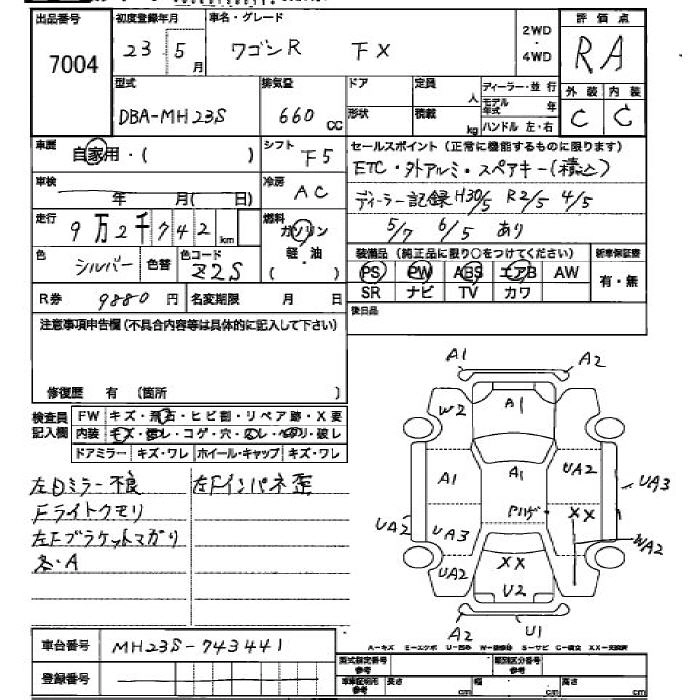 出品番号 初度登録年月 車名・グレード 評価点
7004 23 5月 ワゴンR FX 2WD・4WD RA
型式 排気量 ドア 定員 人 ディーラー・並行 外装 内装
DBA-MH23S 660cc 形状 積載 kg モデル年式 年 ハンドル 左・右 C C
車歴 自家用・( ) シフト F5 セールスポイント(正常に機能するものに限ります)
ETC・外アルミ・スペアキー(積込)
車検 年 月( 日) 冷房 AC ディーラー記録 H30/5 R2/5 4/5
走行 9万2千742km 燃料 ガソリン・軽・油・( ) 5/7 6/5 あり
色 シルバー 色替 色コード Z2S 装備品(純正品に限り○をつけてください) 新車保証書
PS PW ABS エアB AW 有・無
R券 9880円 名変期限 月 日 SR ナビ TV カワ
注意事項申告欄(不具合内容等は具体的に記入して下さい) 後日品
修復歴 有 (箇所 )
検査員記入欄 FW キズ・飛石・ヒビ割・リペア跡・X要
内装 キズ・ コゲ・穴・ 破レ
ドアミラー キズ・ワレ ホイール・キャップ キズ・ワレ
左Dミラー不良 左Fインパネ歪
Fライトクモリ
左Fブラケットマガリ
A
A1 A2
W2 A1
A1 A1 UA2 UA3
UA2 UA3 Pハゲ XX WA2
UA2 XX
U2
A2 U1
A-キズ E-エクボ U-凹み S-サビ C-腐食
車台番号 MH23S-743441 型式指定番号 参考 類別区分番号 参考
登録番号 車庫証明用 参考 長さ cm 幅 cm 高さ cm